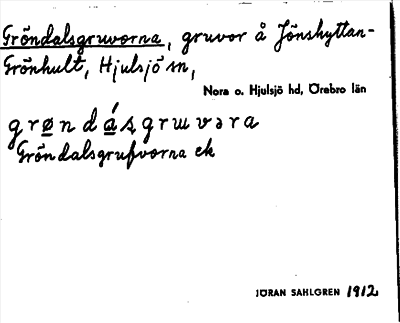 Gröndalsgruvorna, gruvor å Jönshyttan-
Grönhult, Hjulsjö sn,
Nora o. Hjulsjö hd, Örebro län
grøndásgruvəra
Gröndalsgrufvorna ek
JÖRAN SAHLGREN 1912